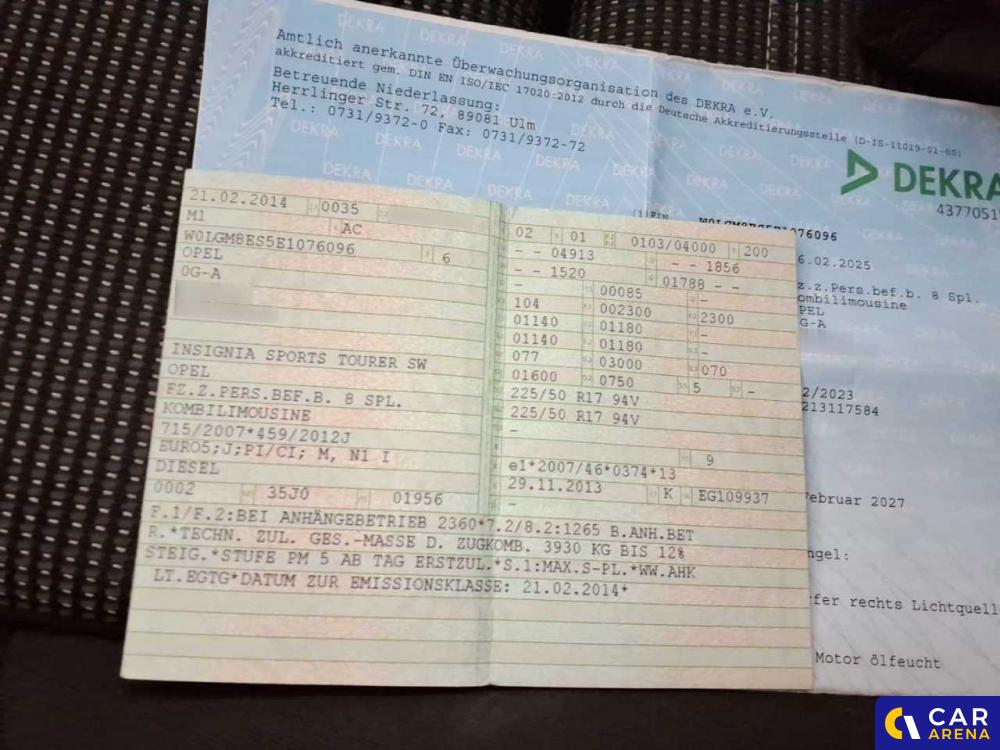 Amtlich anerkannte Überwachungsorganisation des DEKRA e.V.
akkreditiert gem. DIN EN ISO/IEC 17020:2012 durch die Deutsche Akkreditierungsstelle (D-IS-11019-01-00)
Betreuende Niederlassung:
Herrlinger Str. 72, 89081 Ulm
Tel.: 0731/9372-0 Fax: 0731/9372-72
DEKRA
4377051
W0LGM8ES5E1076096
6.02.2025
z.z.Pers.bef.b. 8 Spl.
ombilimousine
PEL
G-A
2/2023
213117584
Februar 2027
ngel:
fer rechts Lichtquell
Motor ölfeucht
21.02.2014 0035
M1 AC
W0LGM8ES5E1076096 6
OPEL
0G-A
INSIGNIA SPORTS TOURER SW
OPEL
FZ.Z.PERS.BEF.B. 8 SPL.
KOMBILIMOUSINE
715/2007*459/2012J
EURO5;J;PI/CI; M, N1 I
DIESEL
0002 35J0 01956
02 01 0103/04000 200
- - 04913 - - 1856
- - 1520 01788 - -
- 00085 -
104 002300 2300
01140 01180 -
01140 01180 -
077 03000 070
01600 0750 5 -
225/50 R17 94V
225/50 R17 94V
-
9
e1*2007/46*0374*13
29.11.2013 K EG109937
-
F.1/F.2:BEI ANHÄNGEBETRIEB 2360*7.2/8.2:1265 B.ANH.BET
R.*TECHN. ZUL. GES.-MASSE D. ZUGKOMB. 3930 KG BIS 12%
STEIG.*STUFE PM 5 AB TAG ERSTZUL.*S.1:MAX.S-PL.*WW.AHK
LT.EGTG*DATUM ZUR EMISSIONSKLASSE: 21.02.2014*
CAR
ARENA